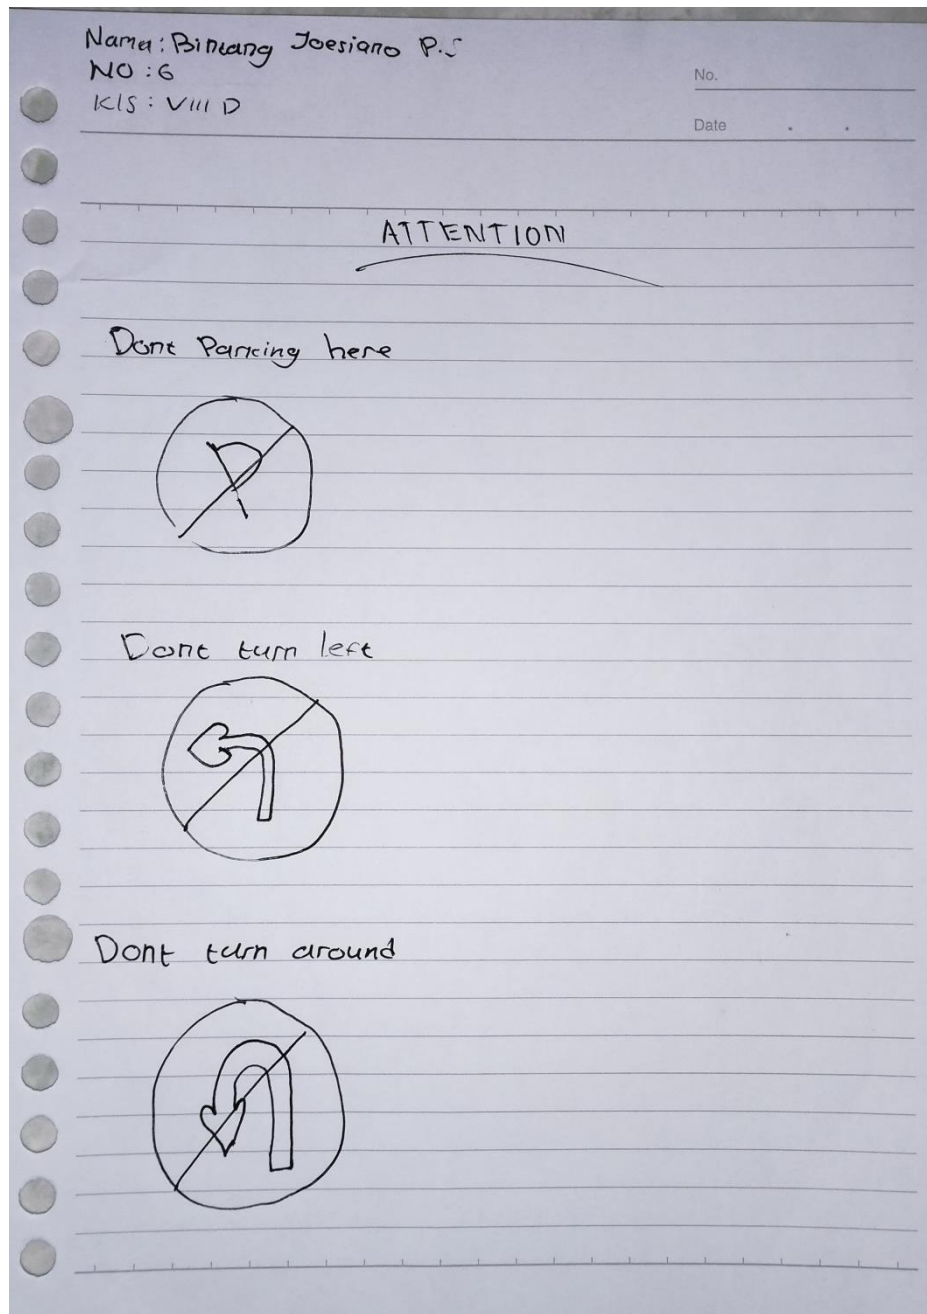 Nama: Bintang Joesiano P.S
NO : 6
Kls : VIII D
No.
Date
ATTENTION
Dont Parking here
P
Dont turn left
Dont turn around